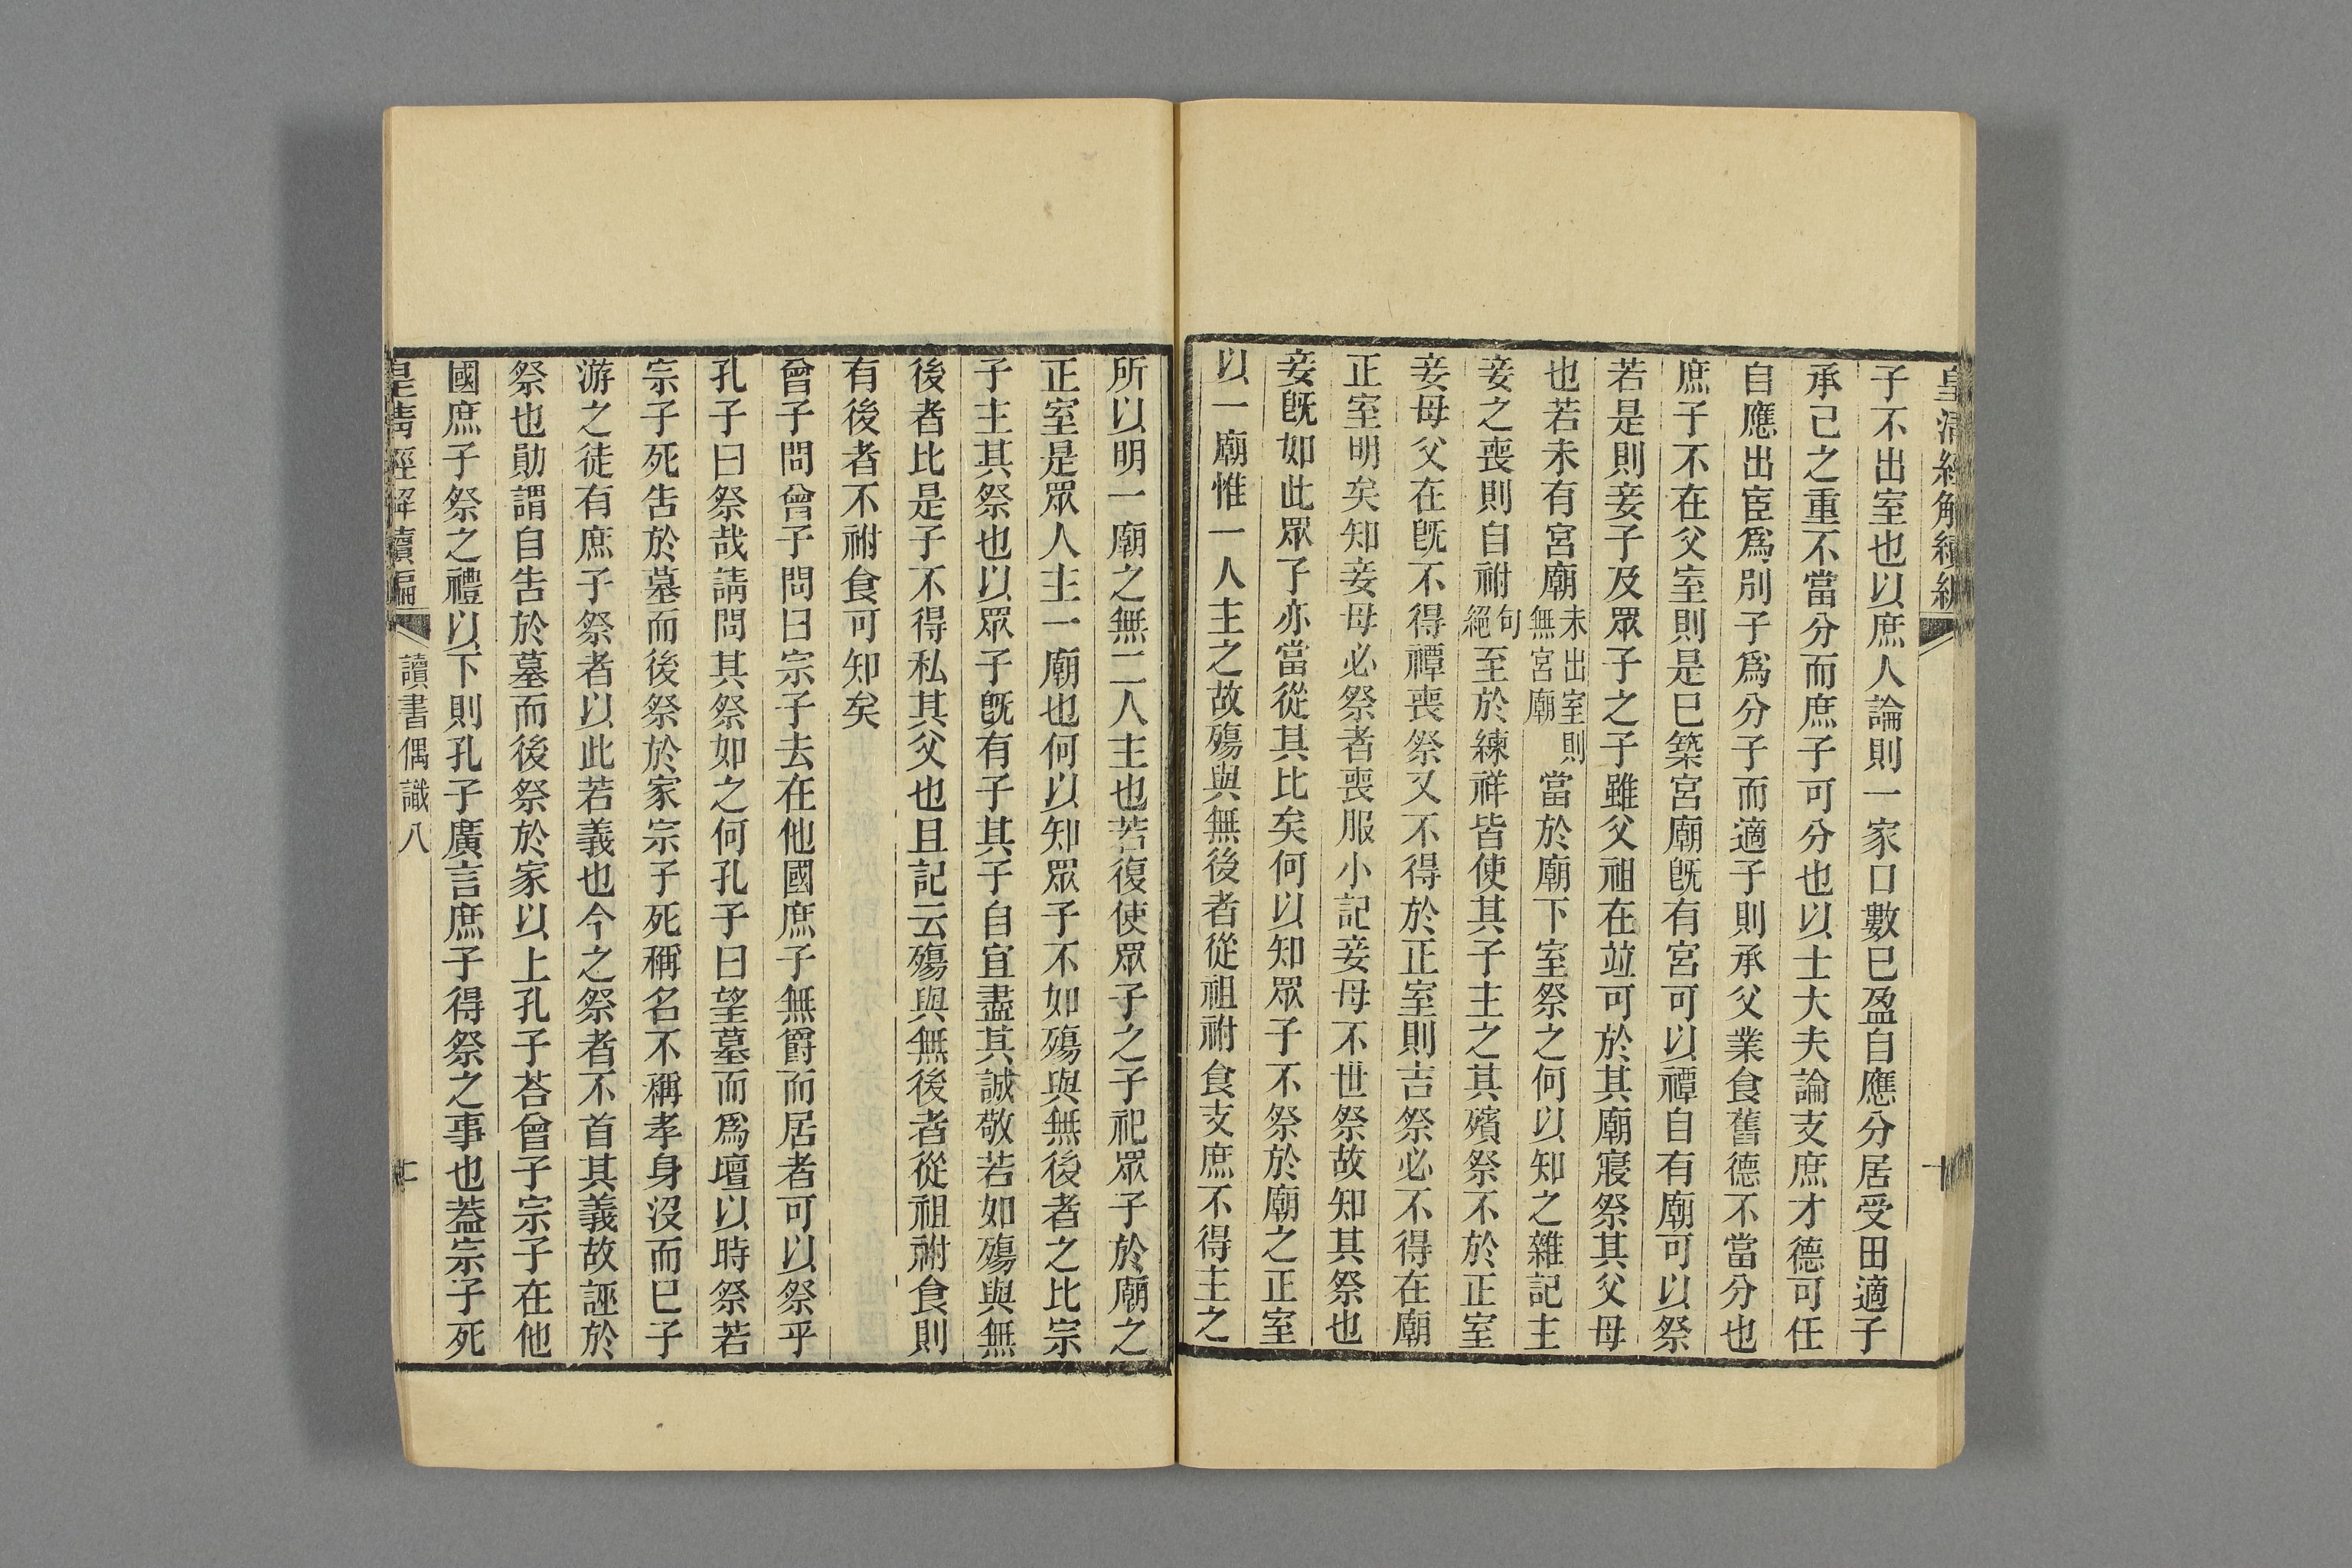 皇清經解續編
十
子不出室也以庶人論則一家口數已盈自應分居受田適子
承己之重不當分而庶子可分也以士大夫論支庶才德可任
自應出宦爲別子爲分子而適子則承父業食舊德不當分也
庶子不在父室則是已築宮廟旣有宮可以禫自有廟可以祭
若是則妾子及眾子之子雖父祖在並可於其廟寢祭其父母
也若未有宮廟未出室則無宮廟當於廟下室祭之何以知之雜記主
妾之喪則自祔句絕至於練祥皆使其子主之其殯祭不於正室
妾母父在旣不得禫喪祭又不得於正室則吉祭必不得在廟
正室明矣知妾母必祭者喪服小記妾母不世祭故知其祭也
妾旣如此眾子亦當從其比矣何以知眾子不祭於廟之正室
以一廟惟一人主之故殤與無後者從祖祔食支庶不得主之
所以明一廟之無二人主也若復使眾子之子祀眾子於廟之
正室是眾人主一廟也何以知眾子不如殤與無後者之比宗
子主其祭也以眾子旣有子其子自宜盡其誠敬若如殤與無
後者比是子不得私其父也且記云殤與無後者從祖祔食則
有後者不祔食可知矣
曾子問曾子問曰宗子去在他國庶子無爵而居者可以祭乎
孔子曰祭哉請問其祭如之何孔子曰望墓而爲壇以時祭若
宗子死告於墓而後祭於家宗子死稱名不稱孝身沒而已子
游之徒有庶子祭者以此若義也今之祭者不首其義故誣於
祭也勛謂自告於墓而後祭於家以上孔子荅曾子宗子在他
國庶子祭之禮以下則孔子廣言庶子得祭之事也葢宗子死
皇清經解續編
讀書偶識八